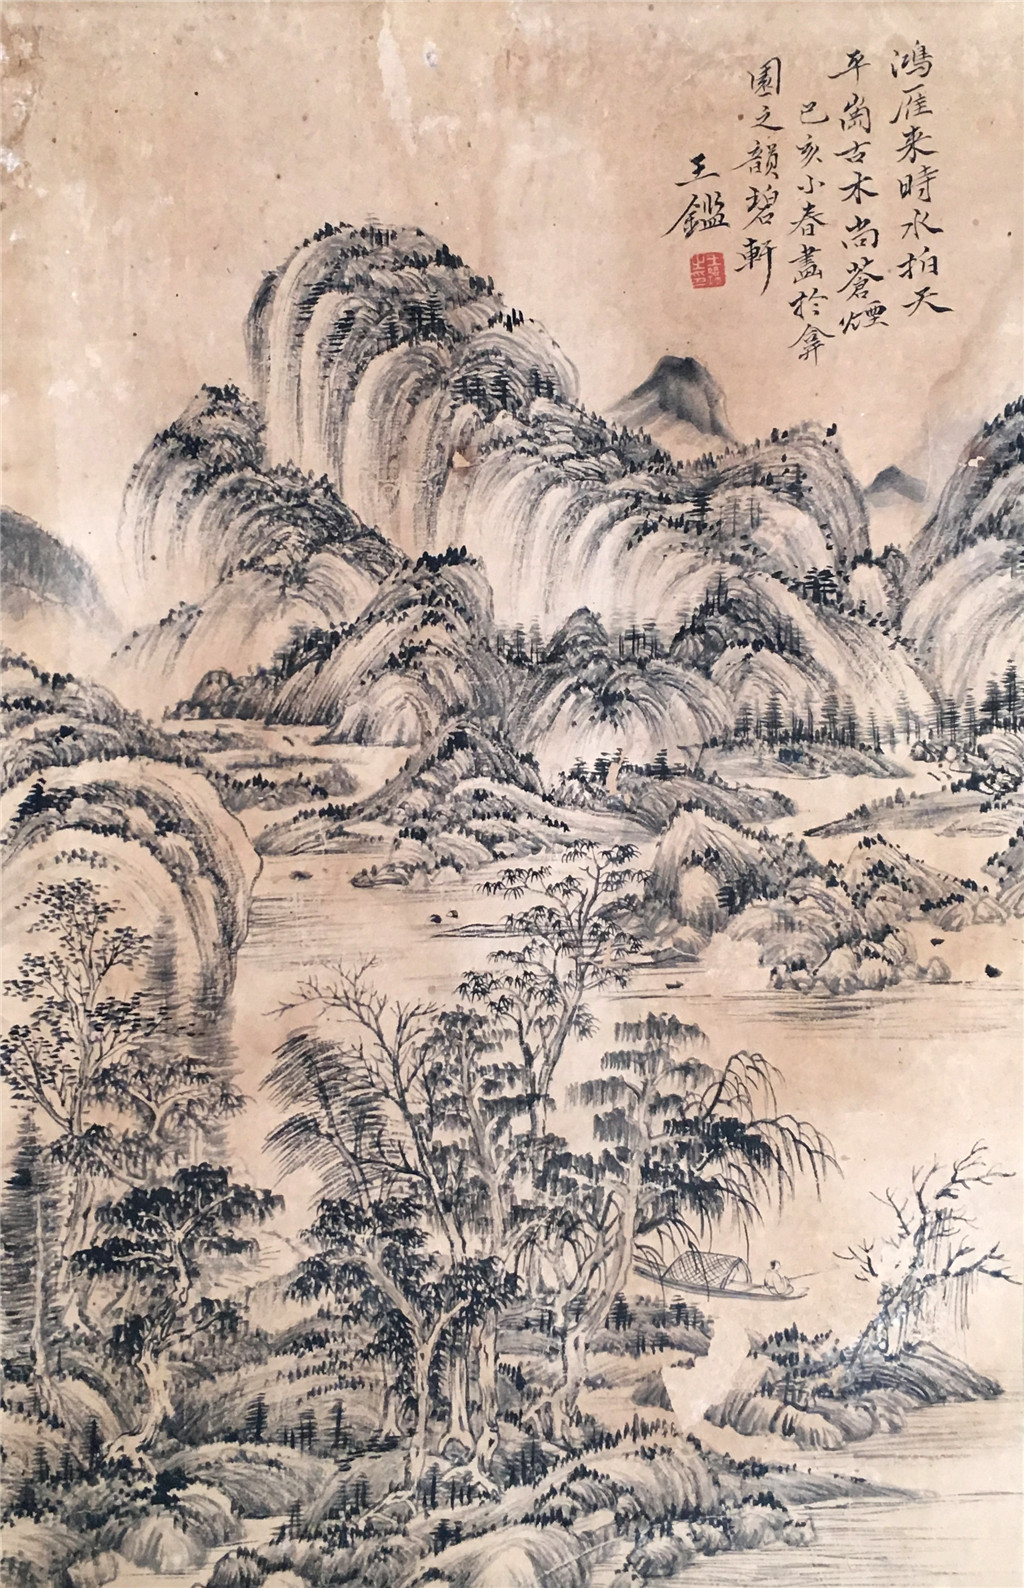 鴻雁来時水拍天
平崗古木尚蒼煙
巳亥小春畫於弇
園之韻碧軒
王鑑